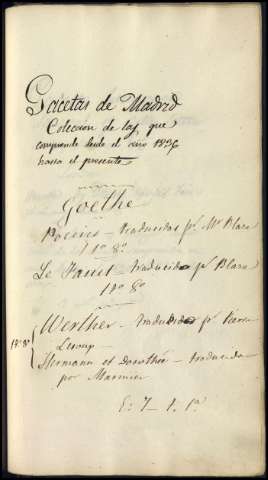 Gacetas de Madrid
Coleccion de las que
comprende desde el año 1836
hasta el presente
Goethe
Poesies - traducidas pr Mr Blaze
1 to 8o
Le Faust - traducido pr Blaze
1 to 8o
Werther - traducido pr Pierre
Leroup -
Hermann et Dorothée - traducida
por Marmier
1 to 8o
E: 7 - t. 1a